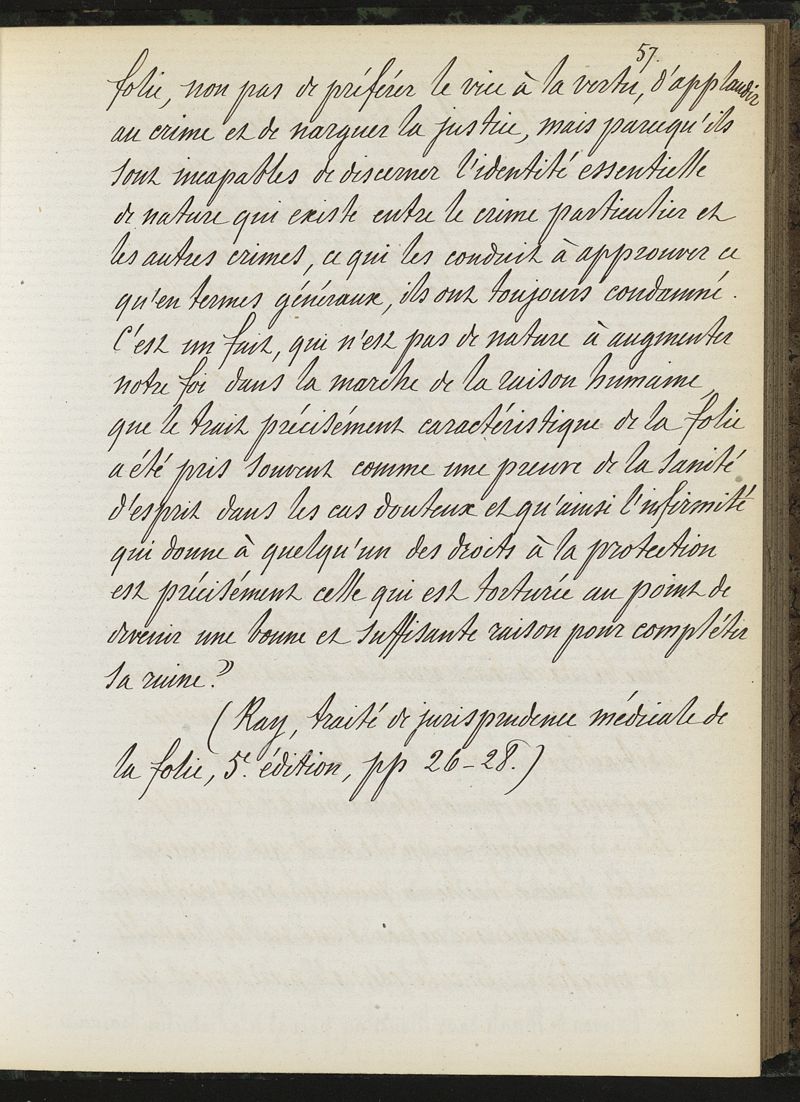 57.
folie, non pas de préférer le vice à la vertu, d'applaudir
au crime et de narguer la justice, mais parcequ'ils
sont incapables de discerner l'identité essentielle
de nature qui existe entre le crime particulier et
les autres crimes, ce qui les conduit à approuver ce
qu'en termes généraux, ils ont toujours condamné.
C'est un fait, qui n'est pas de nature à augmenter
notre foi dans la marche de la raison humaine,
que le trait précisément caractéristique de la folie
a été pris souvent comme une preuve de la sanité
d'esprit dans les cas douteux et qu'ainsi l'infirmité
qui donne à quelqu'un des droits à la protection
est précisément celle qui est torturée au point de
devenir une bonne et suffisante raison pour compléter
sa ruine."
(Ray, traité de jurisprudence médicale de
la folie, 5e. édition, pp 26-28.)